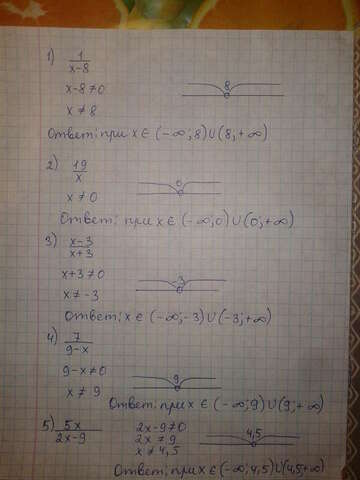 1) 1/(x-8)
x-8≠0
x≠8
8
Ответ: при x∈(-∞;8)∪(8;+∞)
2) 19/x
x≠0
0
Ответ: при x∈(-∞;0)∪(0;+∞)
3) (x-3)/(x+3)
x+3≠0
x≠-3
-3
Ответ: x∈(-∞;-3)∪(-3;+∞)
4) 7/(9-x)
9-x≠0
x≠9
9
Ответ: при x∈(-∞;9)∪(9;+∞)
5) 5x/(2x-9)
2x-9≠0
2x≠9
x≠4,5
4,5
Ответ: при x∈(-∞;4,5)∪(4,5;+∞)